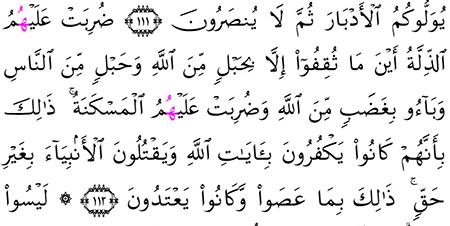 يُوَلُّوكُمُ ٱلۡأَدۡبَارَ ثُمَّ لَا يُنصَرُونَ ۝١١١ ضُرِبَتۡ عَلَيۡهُمُ
ٱلذِّلَّةُ أَيۡنَ مَا ثُقِفُوٓاْ إِلَّا بِحَبۡلٖ مِّنَ ٱللَّهِ وَحَبۡلٖ مِّنَ ٱلنَّاسِ
وَبَآءُو بِغَضَبٖ مِّنَ ٱللَّهِ وَضُرِبَتۡ عَلَيۡهُمُ ٱلۡمَسۡكَنَةُۚ ذَٰلِكَ
بِأَنَّهُمۡ كَانُواْ يَكۡفُرُونَ بِـَٔايَٰتِ ٱللَّهِ وَيَقۡتُلُونَ ٱلۡأَنۢبِيَآءَ بِغَيۡرِ
حَقّٖۚ ذَٰلِكَ بِمَا عَصَواْ وَّكَانُواْ يَعۡتَدُونَ ۝١١٢ ۞ لَيۡسُواْ